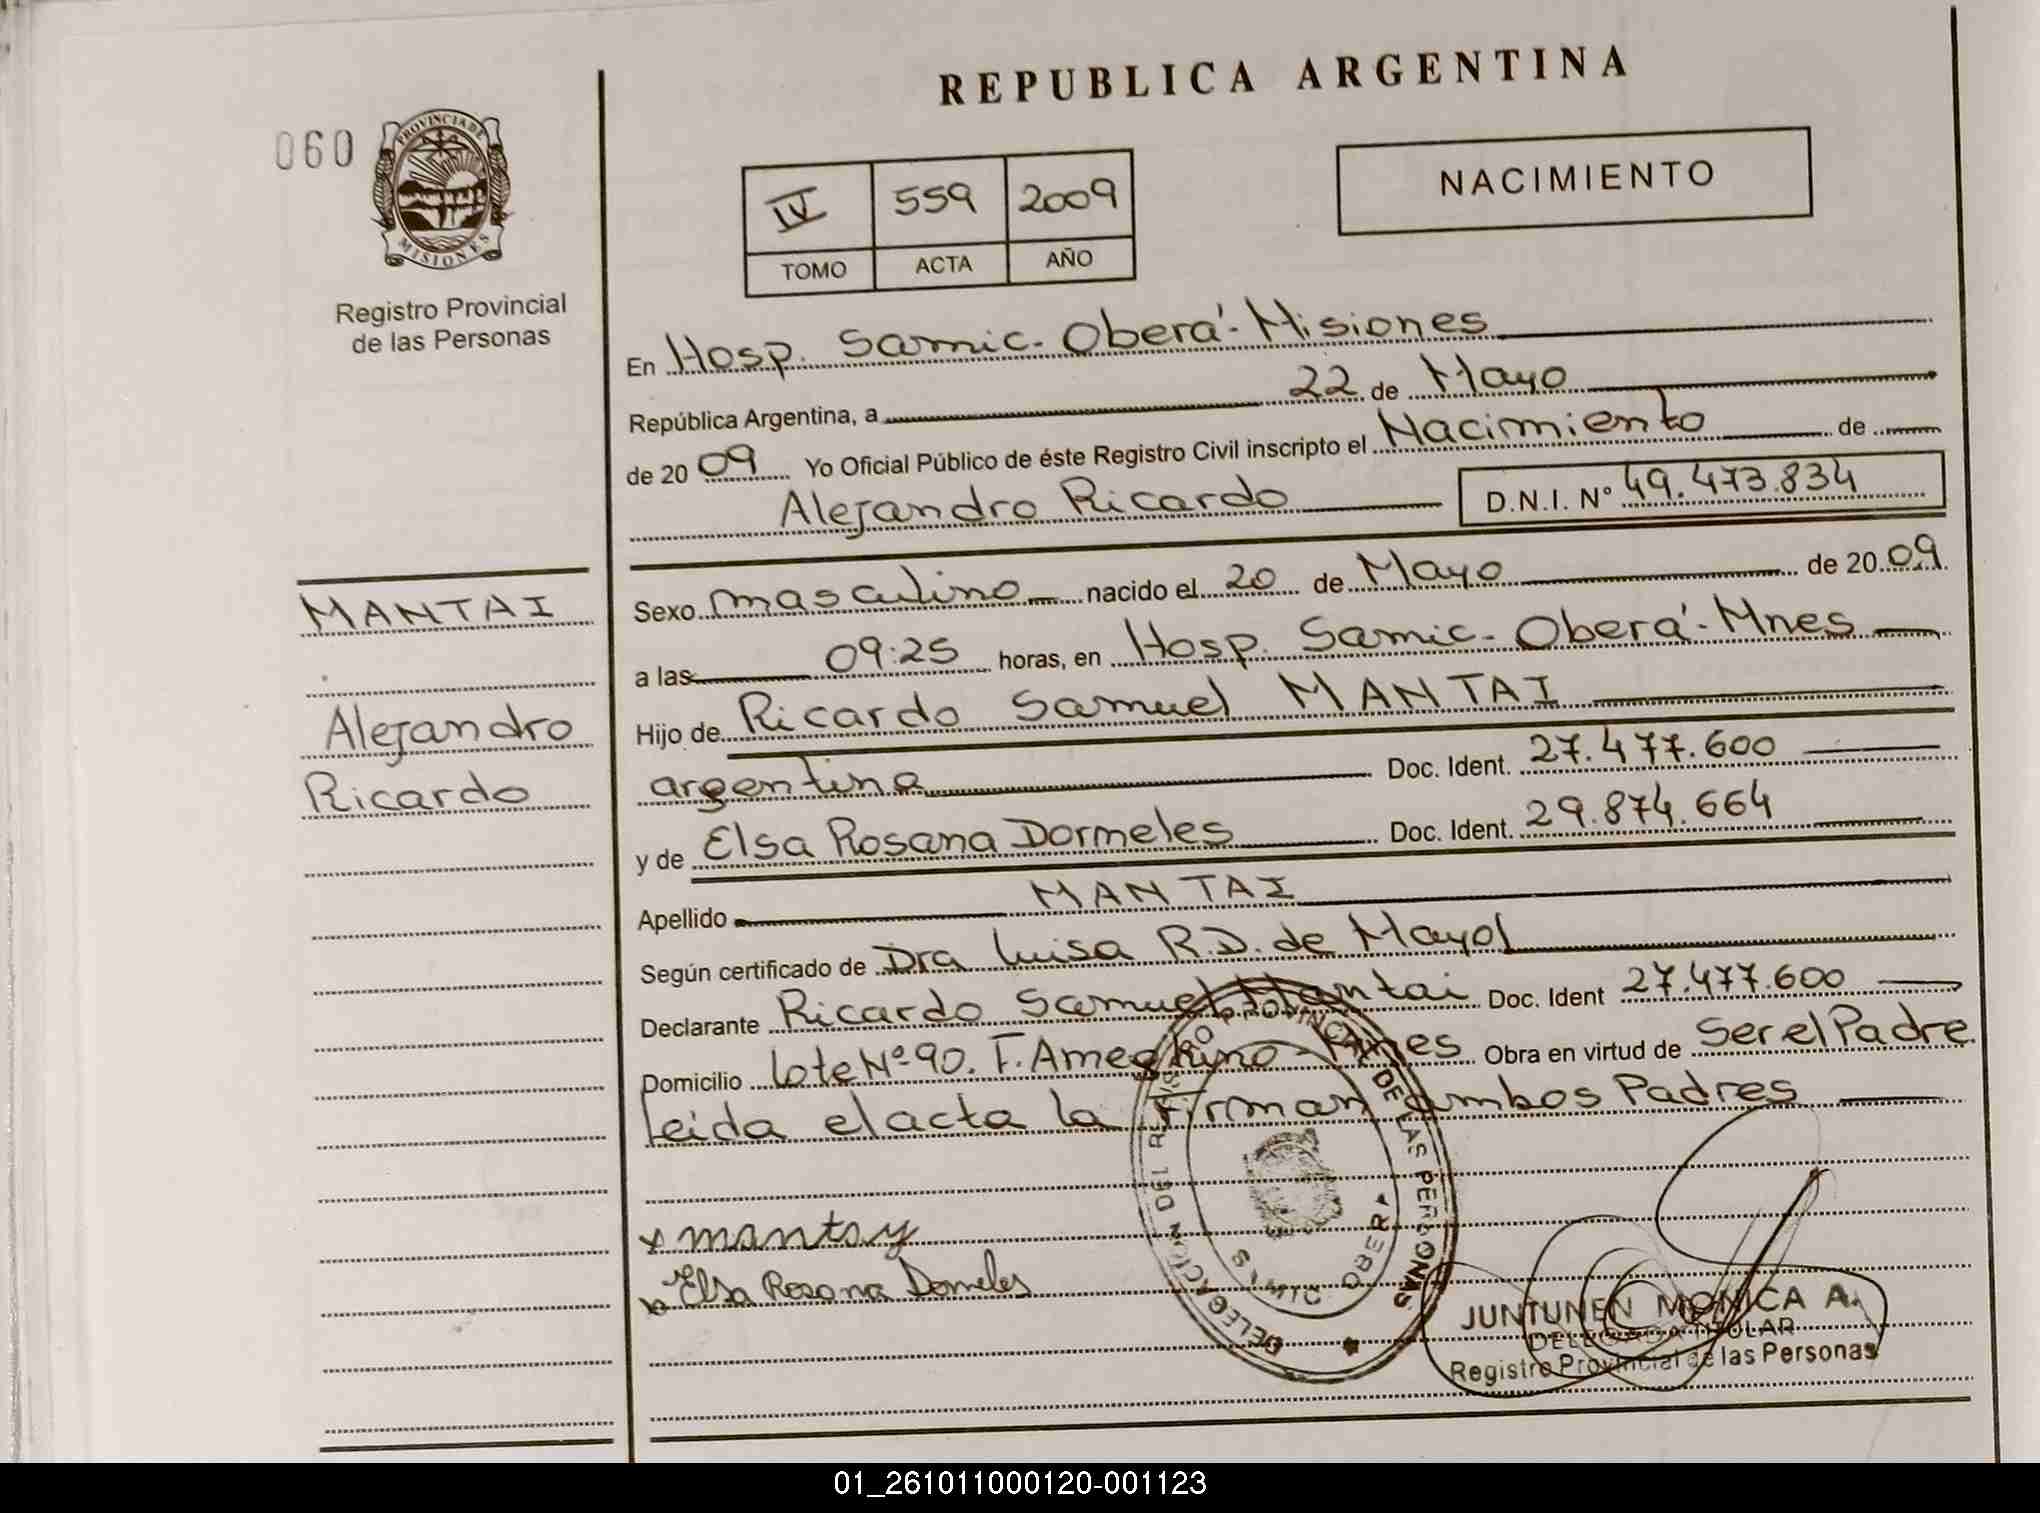 REPUBLICA ARGENTINA
060
PROVINCIA DE
MISIONES
Registro Provincial
de las Personas
IV 559 2009
TOMO ACTA AÑO
NACIMIENTO
En Hosp. Samic. Oberá - Misiones
República Argentina, a 22 de Mayo
de 2009 Yo Oficial Público de éste Registro Civil inscripto el Nacimiento de
Alejandro Ricardo D.N.I. Nº 49.473.834
MANTAI
Alejandro
Ricardo
Sexo masculino nacido el 20 de Mayo de 2009
a las 09:25 horas, en Hosp. Samic - Oberá - Mnes
Hijo de Ricardo Samuel MANTAI
argentina Doc. Ident. 27.477.600
y de Elsa Rosana Dormeles Doc. Ident. 29.874.664
Apellido MANTAI
Según certificado de Dra Luisa R.D. de Mayol
Declarante Ricardo Samuel Mantai Doc. Ident 27.477.600
Domicilio Lote Nº 90. F. Ameghino - Mnes Obra en virtud de Ser el Padre
Leida el acta la firman ambos Padres
x mantay
x Elsa Rosana Dorneles
DELEGACION DEL REGISTRO PROVINCIAL DE LAS PERSONAS
SAMIC OBERA
JUNTUNEN MONICA A.
DELEGADA TITULAR
Registro Provincial de las Personas
01_261011000120-001123